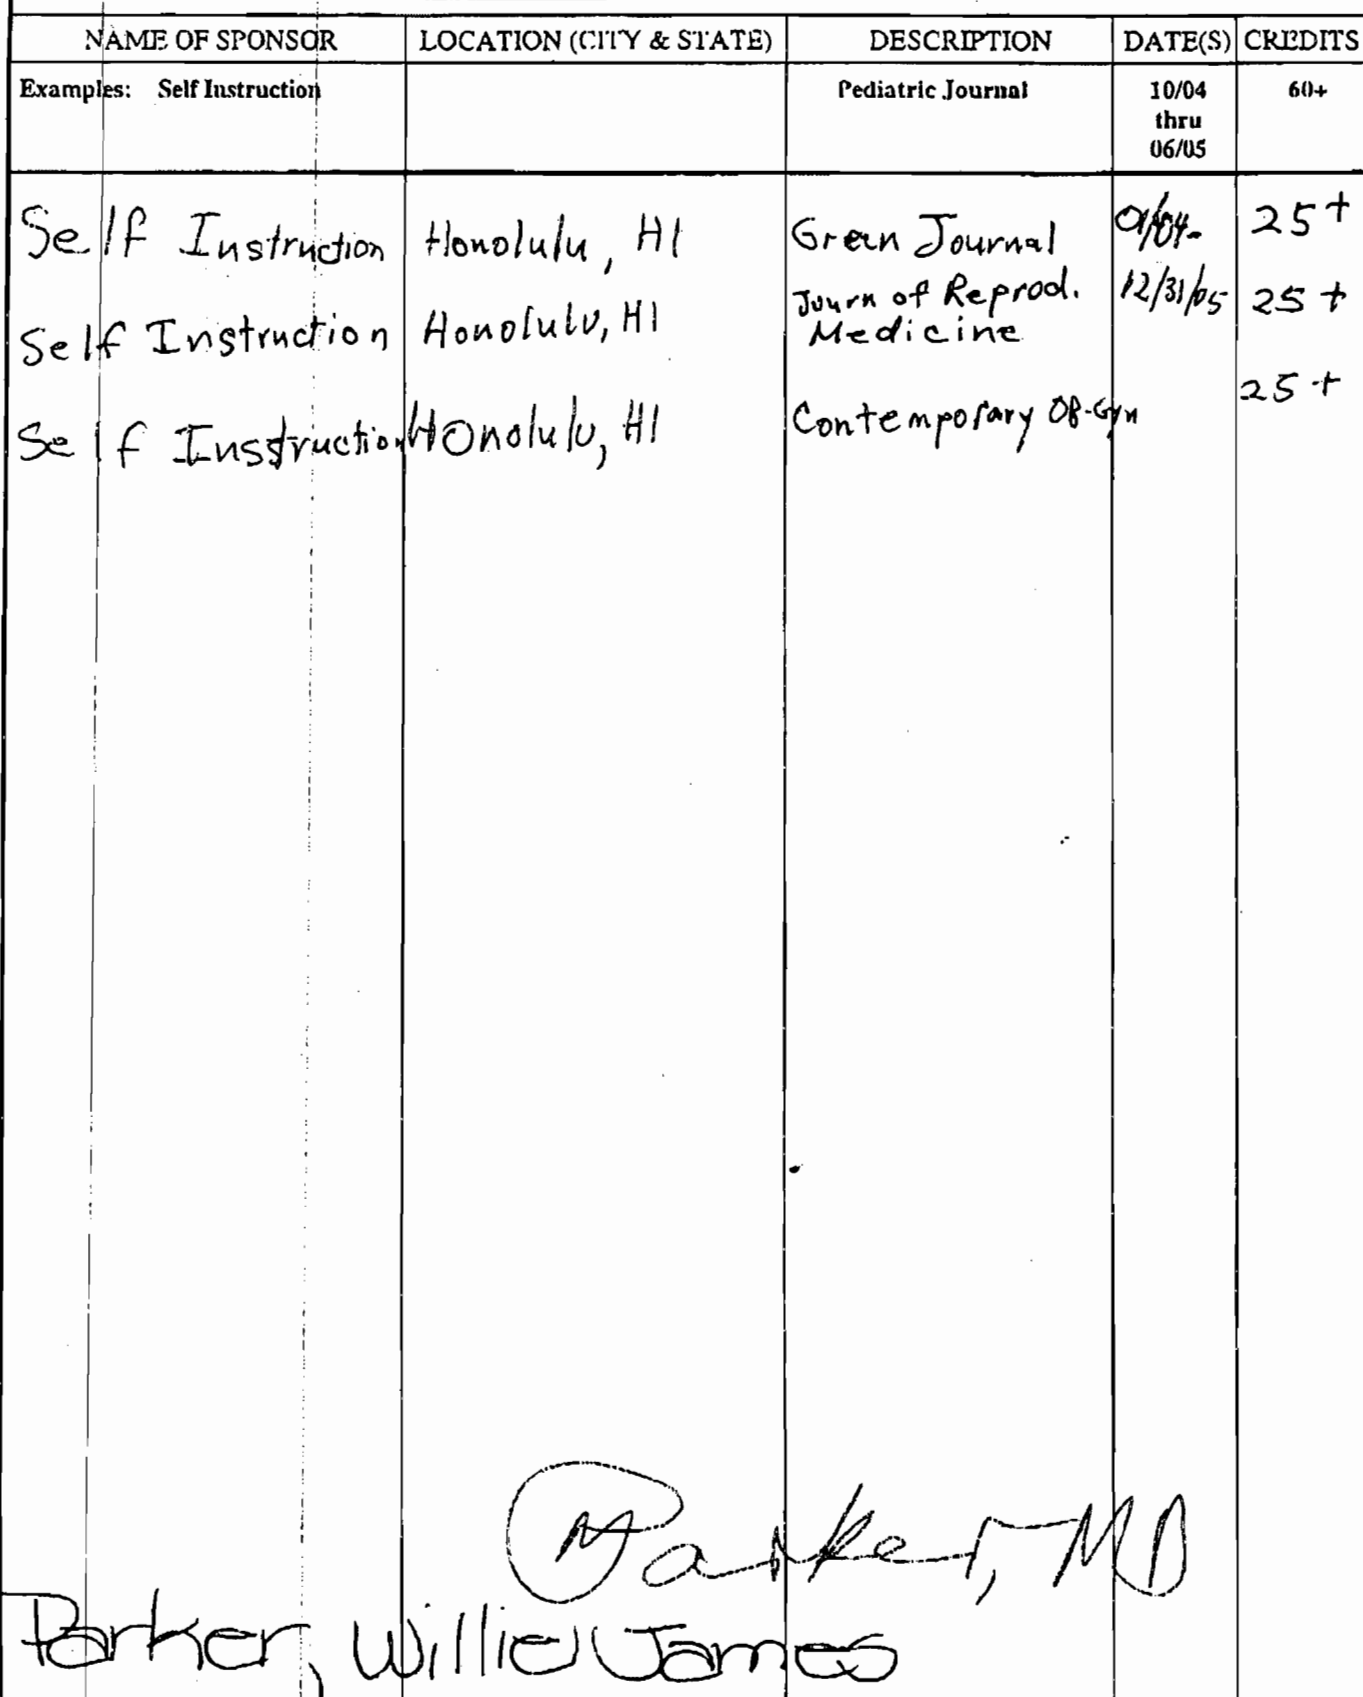 NAME OF SPONSOR LOCATION (CITY & STATE) DESCRIPTION DATE(S) CREDITS
Examples: Self Instruction Pediatric Journal 10/04 60+
thru
06/05
Self Instruction Honolulu, HI Green Journal 01/04- 25+
Self Instruction Honolulu, HI Journ of Reprod. 12/31/05 25+
Medicine
Self Insstruction Honolulu, HI Contemporary OB-Gyn 25+
Parker, MD
Parker, Willie James